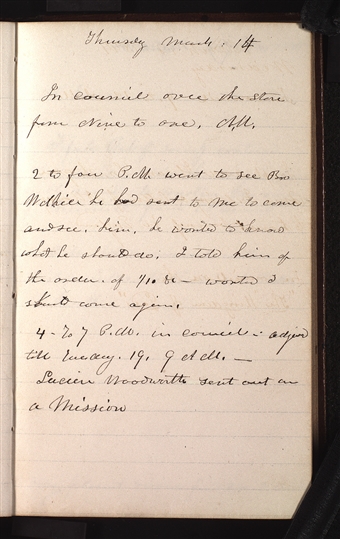 Thursday March. 14
In council over the store
from Nine to one. A.M.
2 to four P.M. went to see Bro
he had sent to me to come
and see. him, he wanted to know
what he should do. I told him of
the order. of 1/10 &c — wanted I
should come again.
4- to 7 P.M. in council - adjd
till Tuesday. 19. 9 A.M. —
Lucien Woodworth sent out on
a Mission